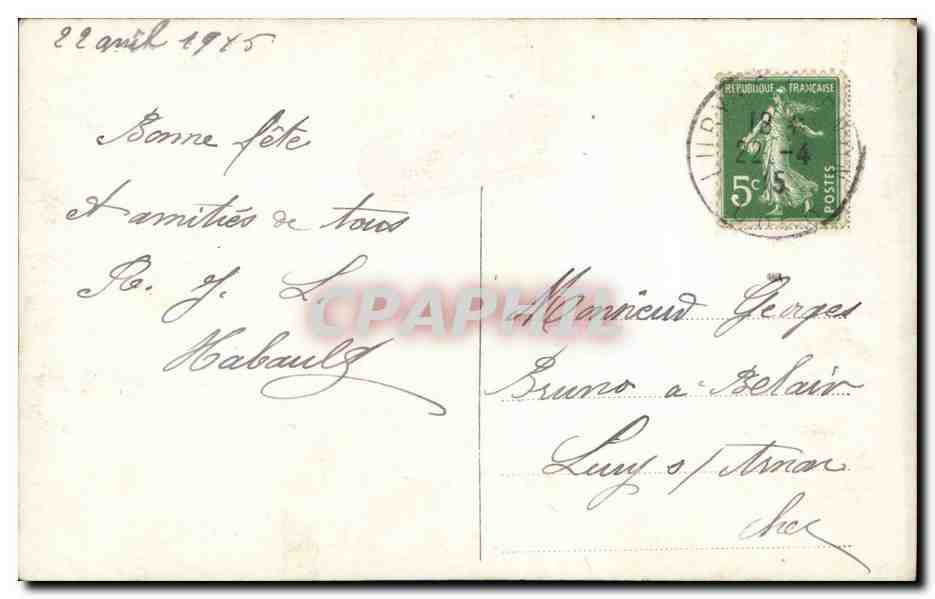 22 avril 1915
Bonne fête
Et amitiés de tous
R. J. L.
Habault
REPUBLIQUE FRANÇAISE
18
22-4
15
5c
POSTES
LURY
CPAPHIL
Monsieur Georges
Bruno a Belair
Lury s/ Arnon
Cher